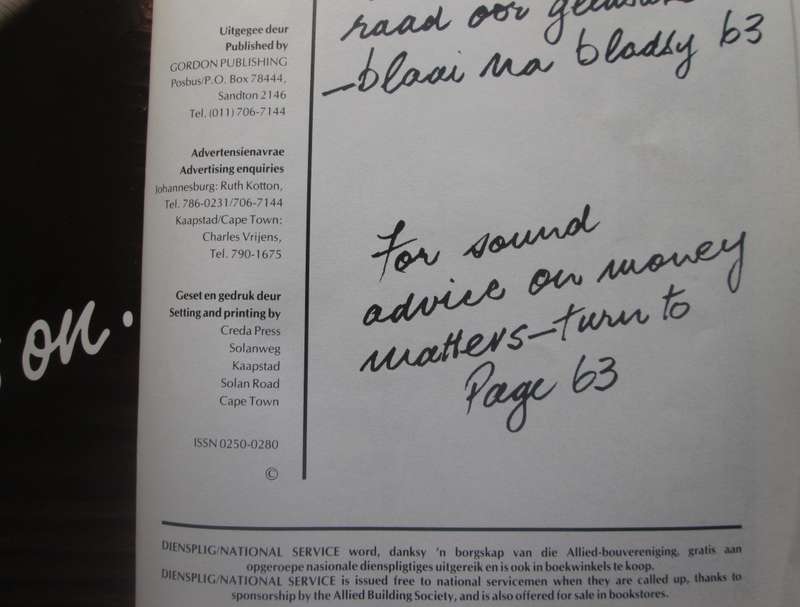 Uitgegee deur
Published by
GORDON PUBLISHING
Posbus/P.O. Box 78444,
Sandton 2146
Tel. (011) 706-7144
Advertensienavrae
Advertising enquiries
Johannesburg: Ruth Kotton,
Tel. 786-0231/706-7144
Kaapstad/Cape Town:
Charles Vrijens,
Tel. 790-1675
Geset en gedruk deur
Setting and printing by
Creda Press
Solanweg
Kaapstad
Solan Road
Cape Town
ISSN 0250-0280
©
raad oor
–blaai na bladsy 63
For sound
advice on money
matters–turn to
Page 63
on.
DIENSPLIG/NATIONAL SERVICE word, danksy 'n borgskap van die Allied-bouvereniging, gratis aan
opgeroepe nasionale dienspligtiges uitgereik en is ook in boekwinkels te koop.
DIENSPLIG/NATIONAL SERVICE is issued free to national servicemen when they are called up, thanks to
sponsorship by the Allied Building Society, and is also offered for sale in bookstores.